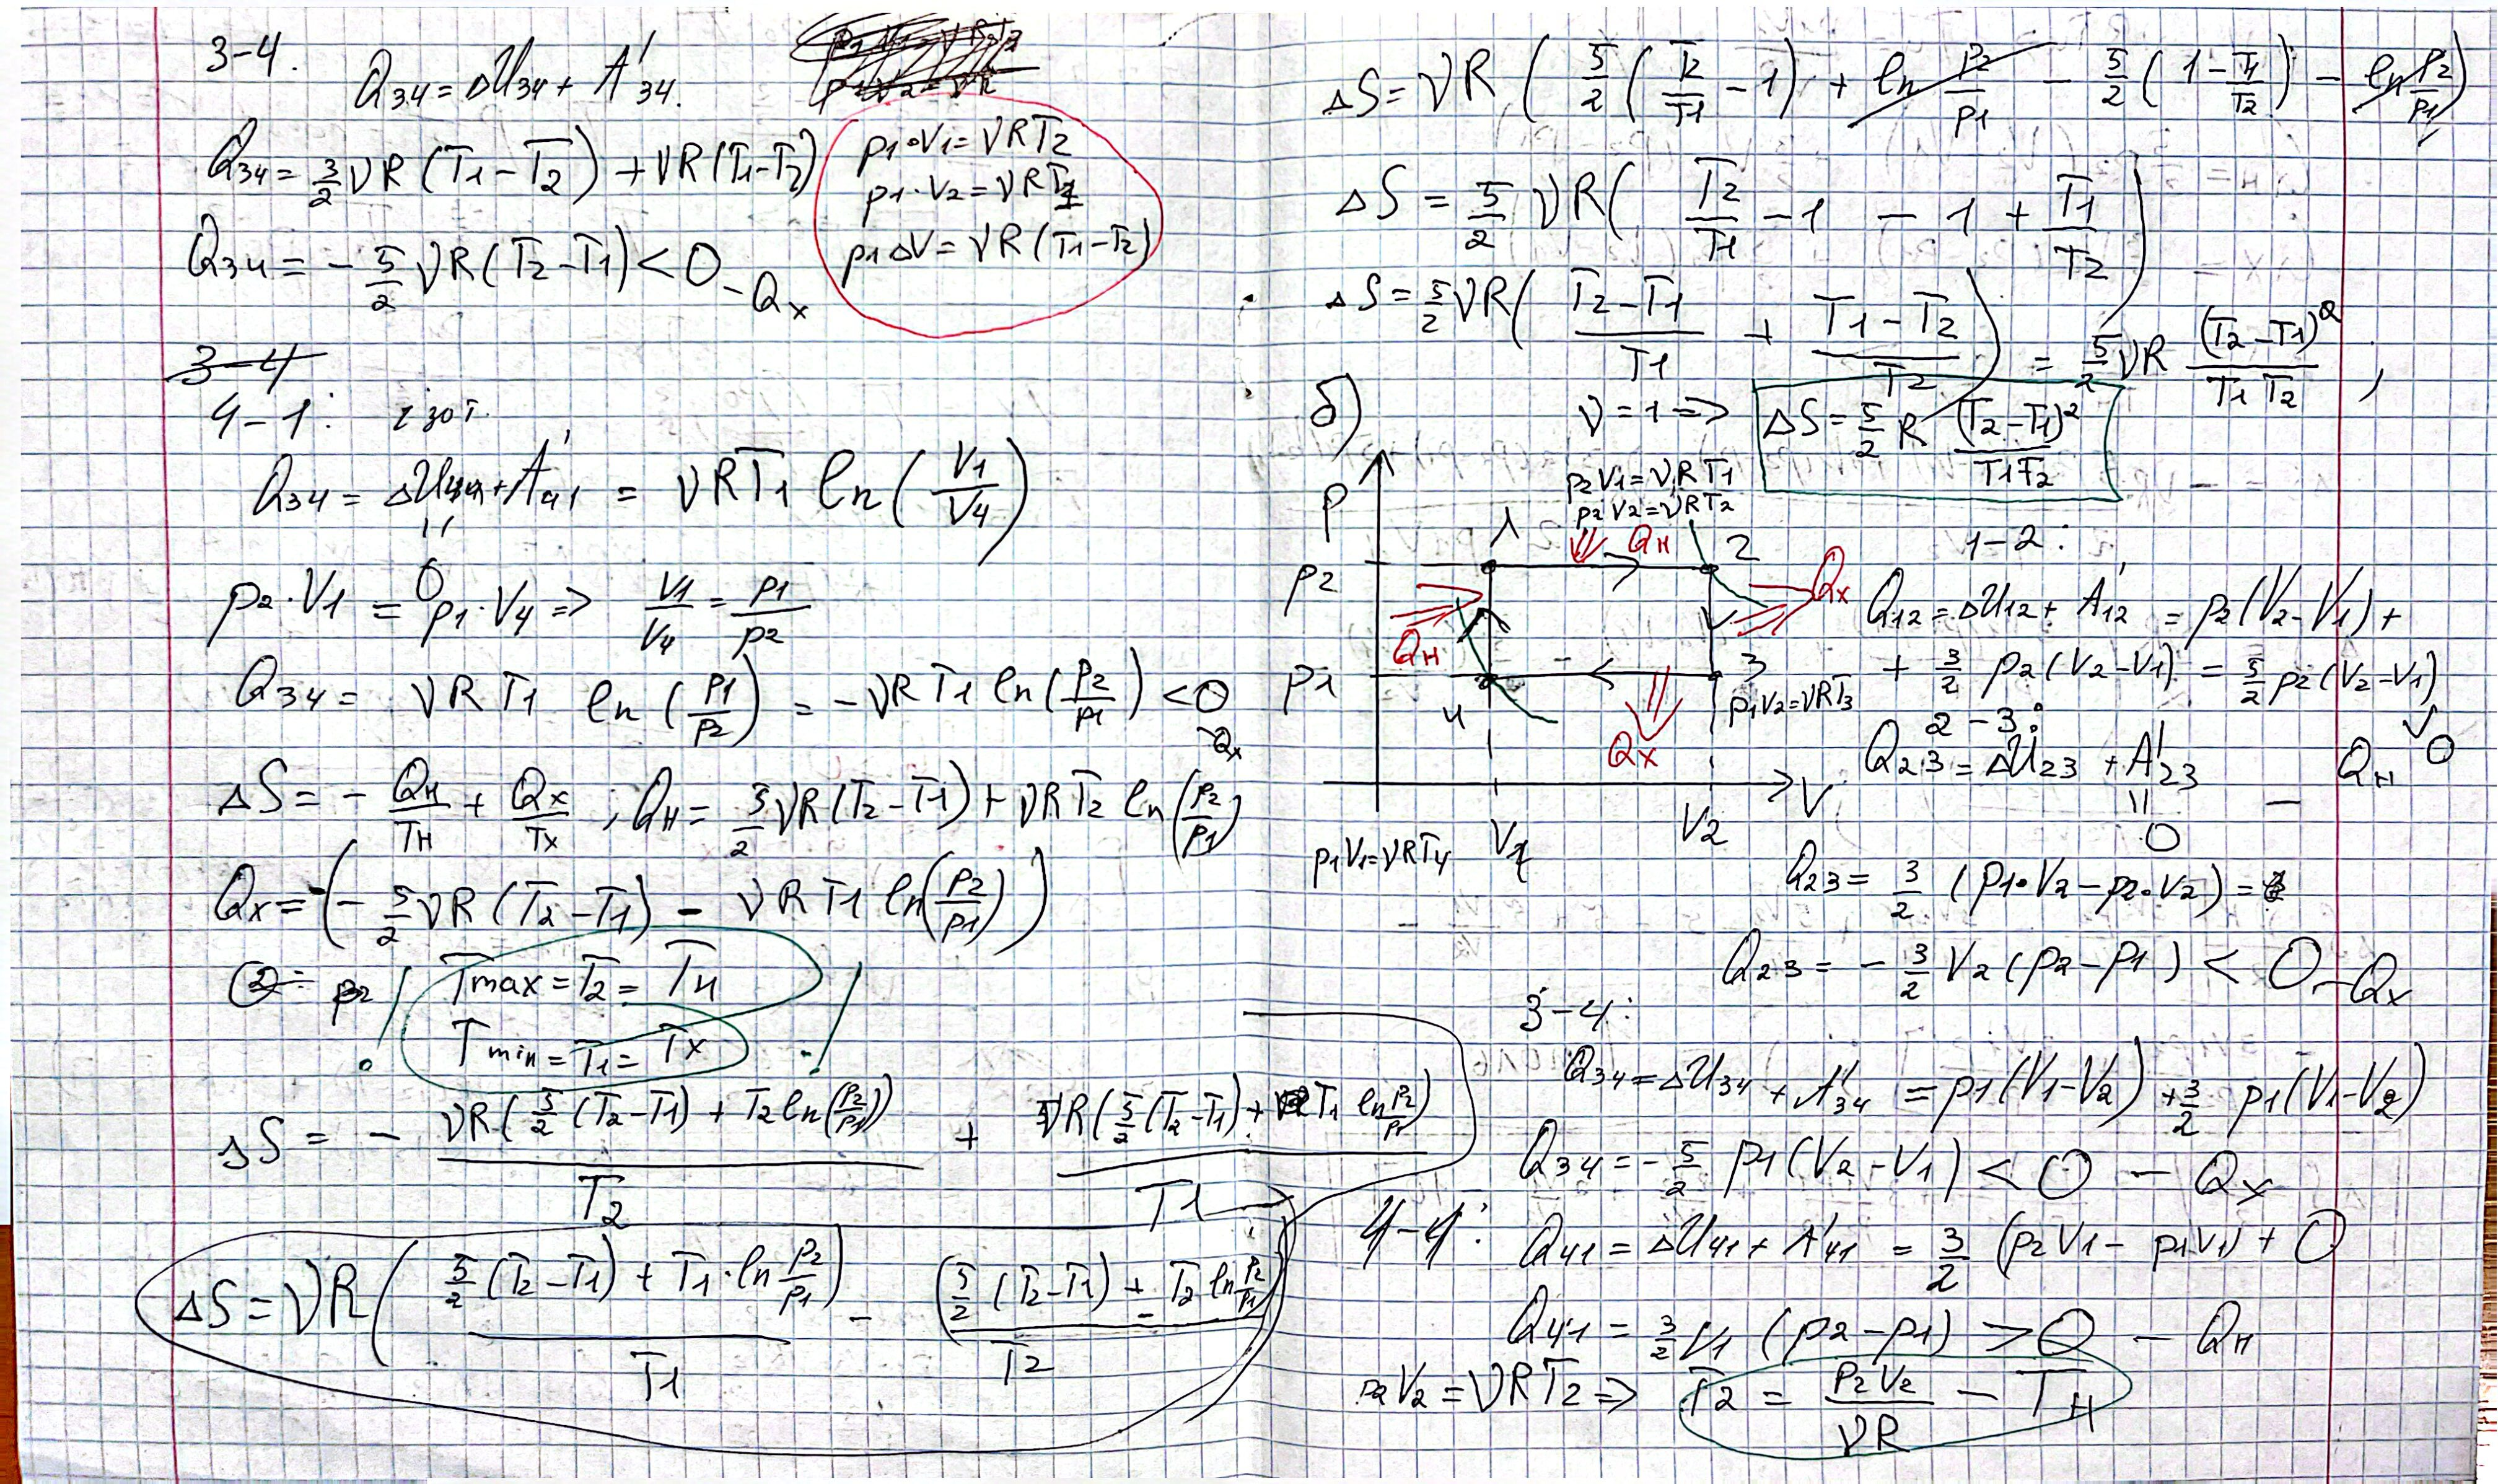 3-4.
Q34 = ΔU34 + A'34.
Q34 = 3/2 νR (T1 - T2) + νR (T1 - T2)
p1·V1 = νRT2
p1·V2 = νRT1
p1ΔV = νR (T1 - T2)
Q34 = - 5/2 νR (T2 - T1) < 0 - Qx
3-4
4-1: изот.
Q34 = ΔU41 + A'41 = νRT1 ln (V1/V4)
"
0
p2·V1 = p1·V4 => V1/V4 = p1/p2
Q34 = νRT1 ln (p1/p2) = -νRT1 ln (p2/p1) < 0
-Qx
ΔS = - Qн/Tн + Qx/Tx ; Qн = 5/2 νR (T2 - T1) + νRT2 ln (p2/p1)
Qx = -(- 5/2 νR (T2 - T1) - νRT1 ln (p2/p1))
Tmax = T2 = Tн
Tmin = T1 = Tx
!
!
ΔS = - νR (5/2 (T2 - T1) + T2 ln (p2/p1)) / T2 + νR (5/2 (T2 - T1) + T1 ln p2/p1) / T1
ΔS = νR ( (5/2 (T2 - T1) + T1·ln p2/p1) / T1 - (5/2 (T2 - T1) + T2 ln p2/p1) / T2 )
ΔS = νR ( 5/2 (T2/T1 - 1) + ln p2/p1 - 5/2 (1 - T1/T2) - ln p2/p1 )
ΔS = 5/2 νR ( T2/T1 - 1 - 1 + T1/T2 )
ΔS = 5/2 νR ( (T2 - T1)/T1 + (T1 - T2)/T2 ) = 5/2 νR (T2 - T1)²/(T1 T2) ,
б)
ν = 1 => ΔS = 5/2 R (T2 - T1)²/(T1 T2)
p2V1 = νRT1
p2V2 = νRT2
p
1
Qн
2
p2
Qx
Qн
p1
4
3
p1V2 = νRT3
Qx
V
V1
V2
p1V1 = νRT4
1-2:
Q12 = ΔU12 + A'12 = p2 (V2 - V1) +
+ 3/2 p2 (V2 - V1) = 5/2 p2 (V2 - V1)
∨
0
- Qн
2-3:
Q23 = ΔU23 + A'23
"
0
Q23 = 3/2 (p1·V2 - p2·V2) =
Q23 = - 3/2 V2 (p2 - p1) < 0 - Qx
3-4:
Q34 = ΔU34 + A'34 = p1 (V1 - V2) + 3/2 p1 (V1 - V2)
Q34 = - 5/2 p1 (V2 - V1) < 0 - Qx
4-1:
Q41 = ΔU41 + A'41 = 3/2 (p2V1 - p1V1) + 0
Q41 = 3/2 V1 (p2 - p1) > 0 - Qн
p2V2 = νRT2 => T2 = p2V2/νR - Tн